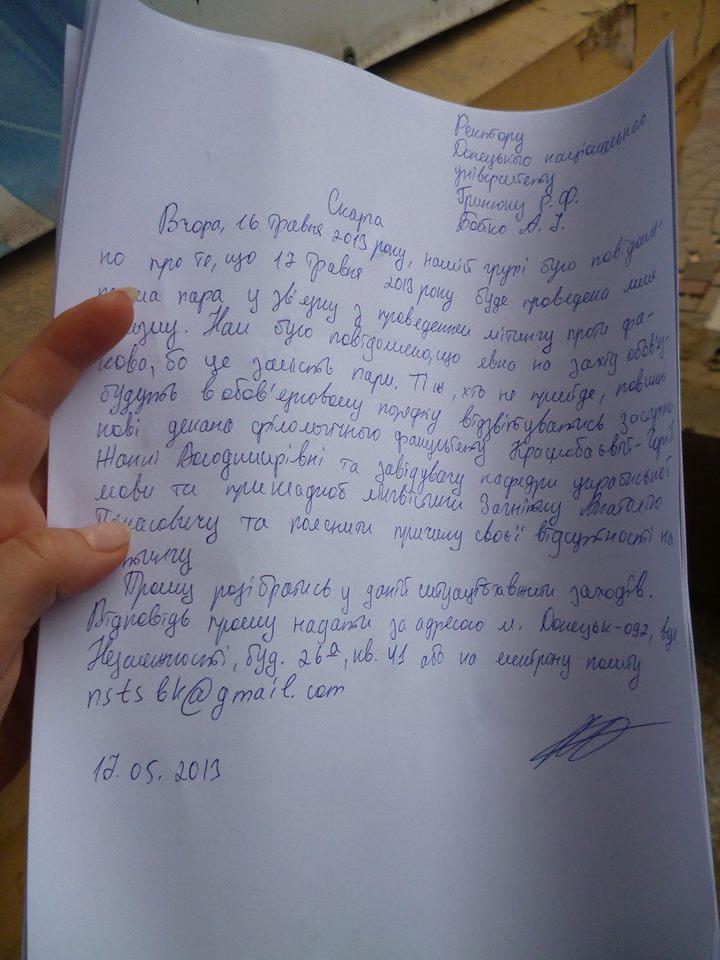 Ректору
Донецького національного
університету
Гринюку Р. Ф.
Бобко А. І.
Скарга
Вчора, 16 травня 2013 року, нашій групі було повідомле-
но про те, що 17 травня 2013 року буде проведена лише
пара у зв'язку з проведенням мітингу проти фа-
шизму. Нам було повідомлено, що явка на захід обов'яз-
кова, бо це замість пари. Ті ж, хто не прийде, повинні
будуть в обов'язковому порядку відзвітуватись заступни-
кові декана філологічного факультету Краснобаєвій-Чорній
Жанні Володимирівні та завідувачу кафедри української
мови та прикладної лінгвістики Загнітку Анатолію
Панасовичу та пояснити причину своєї відсутності на
мітингу
Прошу розібратись у даній ситуації та вжити заходів.
Відповідь прошу надати за адресою м. Донецьк-092, вул
Незалежності, буд. 26а, кв. 41 або на електрону пошту
nstsbk@gmail.com
17.05.2013